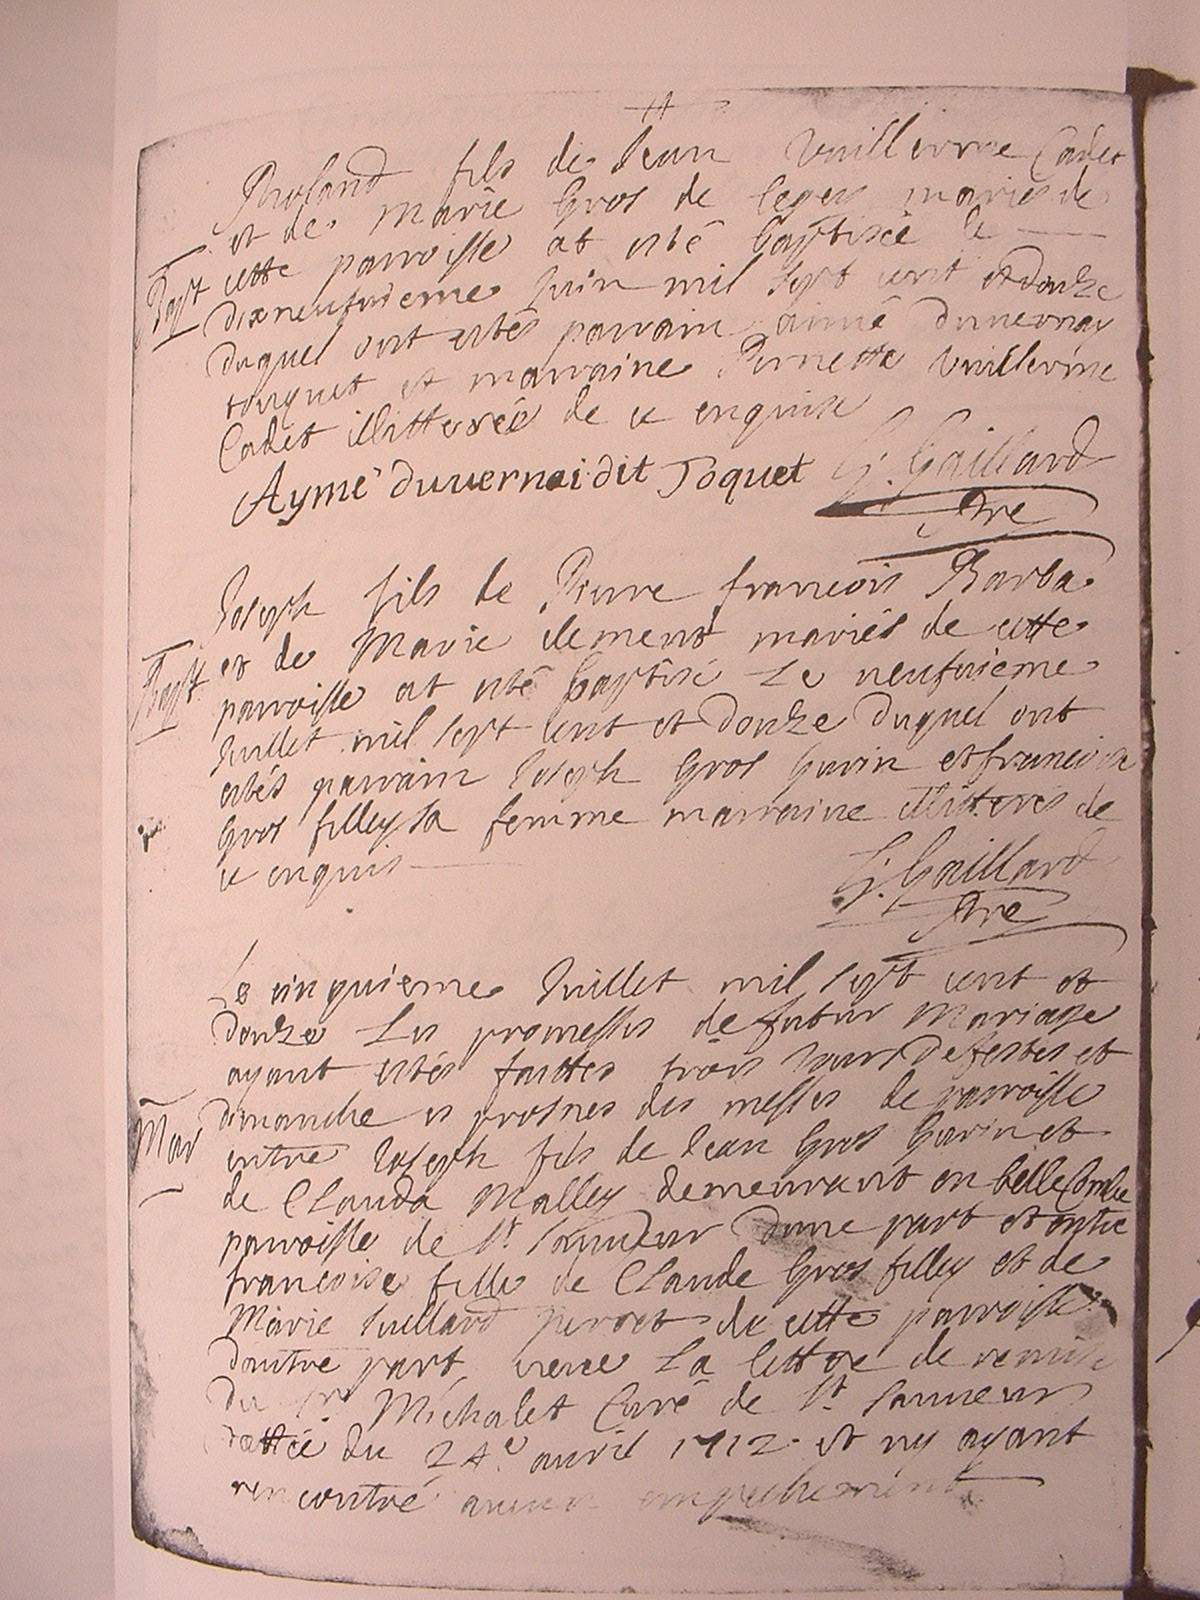 Roland fils de Jean Vuillerme Cadet
et de Marie Gros de leger mariés de
Bapt cette parroisse at esté baptisé le
dixneufvieme Juin mil sept cent et douze
duquel ont estés parrain aimé duvernay
toquet et marraine Pernette Vuillerme
Cadet illitterée de ce enquise
Aymé duuernai dit Toquet G. Gaillard
Ptre
Joseph fils de Pierre francois Barba
Bapt et de Marie clement mariés de cette
parroisse at esté baptisé Le neufvieme
Juillet mil sept cent et douze duquel ont
estés parrain Joseph Gros Gurin et francoise
Gros filley sa femme marraine illitterés de
ce enquis
G. Gaillard
Ptre
Le cinquieme Juillet mil sept cent et
douze Les promesses de futur Mariage
ayant estés faittes trois jours de festes et
Mar dimanche es prosnes des messes de parroisse
entre Joseph fils de Jean Gros Gurin et
de Clauda Malley demeurant en belle Combe
parroisse de St. Sauveur dune part et entre
francoise fille de Claude Gros filley et de
Marie Juillard perret de cette parroisse
dautre part, veue La lettre de remise
du Sr Michalet Curé de St Sauveur
dattée du 24e avril 1712 et ny ayant
rencontré aucun empechement